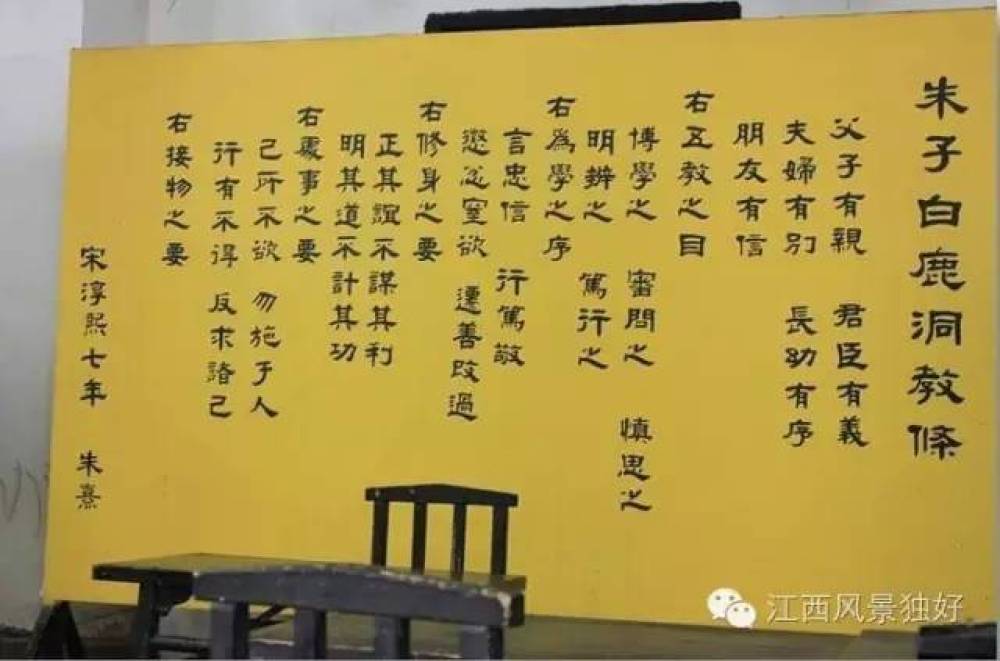 朱子白鹿洞教條
父子有親 君臣有義
夫婦有别 長幼有序
朋友有信
右五教之目
博學之 審問之 慎思之
明辨之 篤行之
右為學之序
言忠信 行篤敬
懲忿窒欲 遷善改過
右修身之要
正其誼不謀其利
明其道不計其功
右處事之要
己所不欲 勿施于人
行有不得 反求諸己
右接物之要
宋淳熙七年 朱熹
江西风景独好